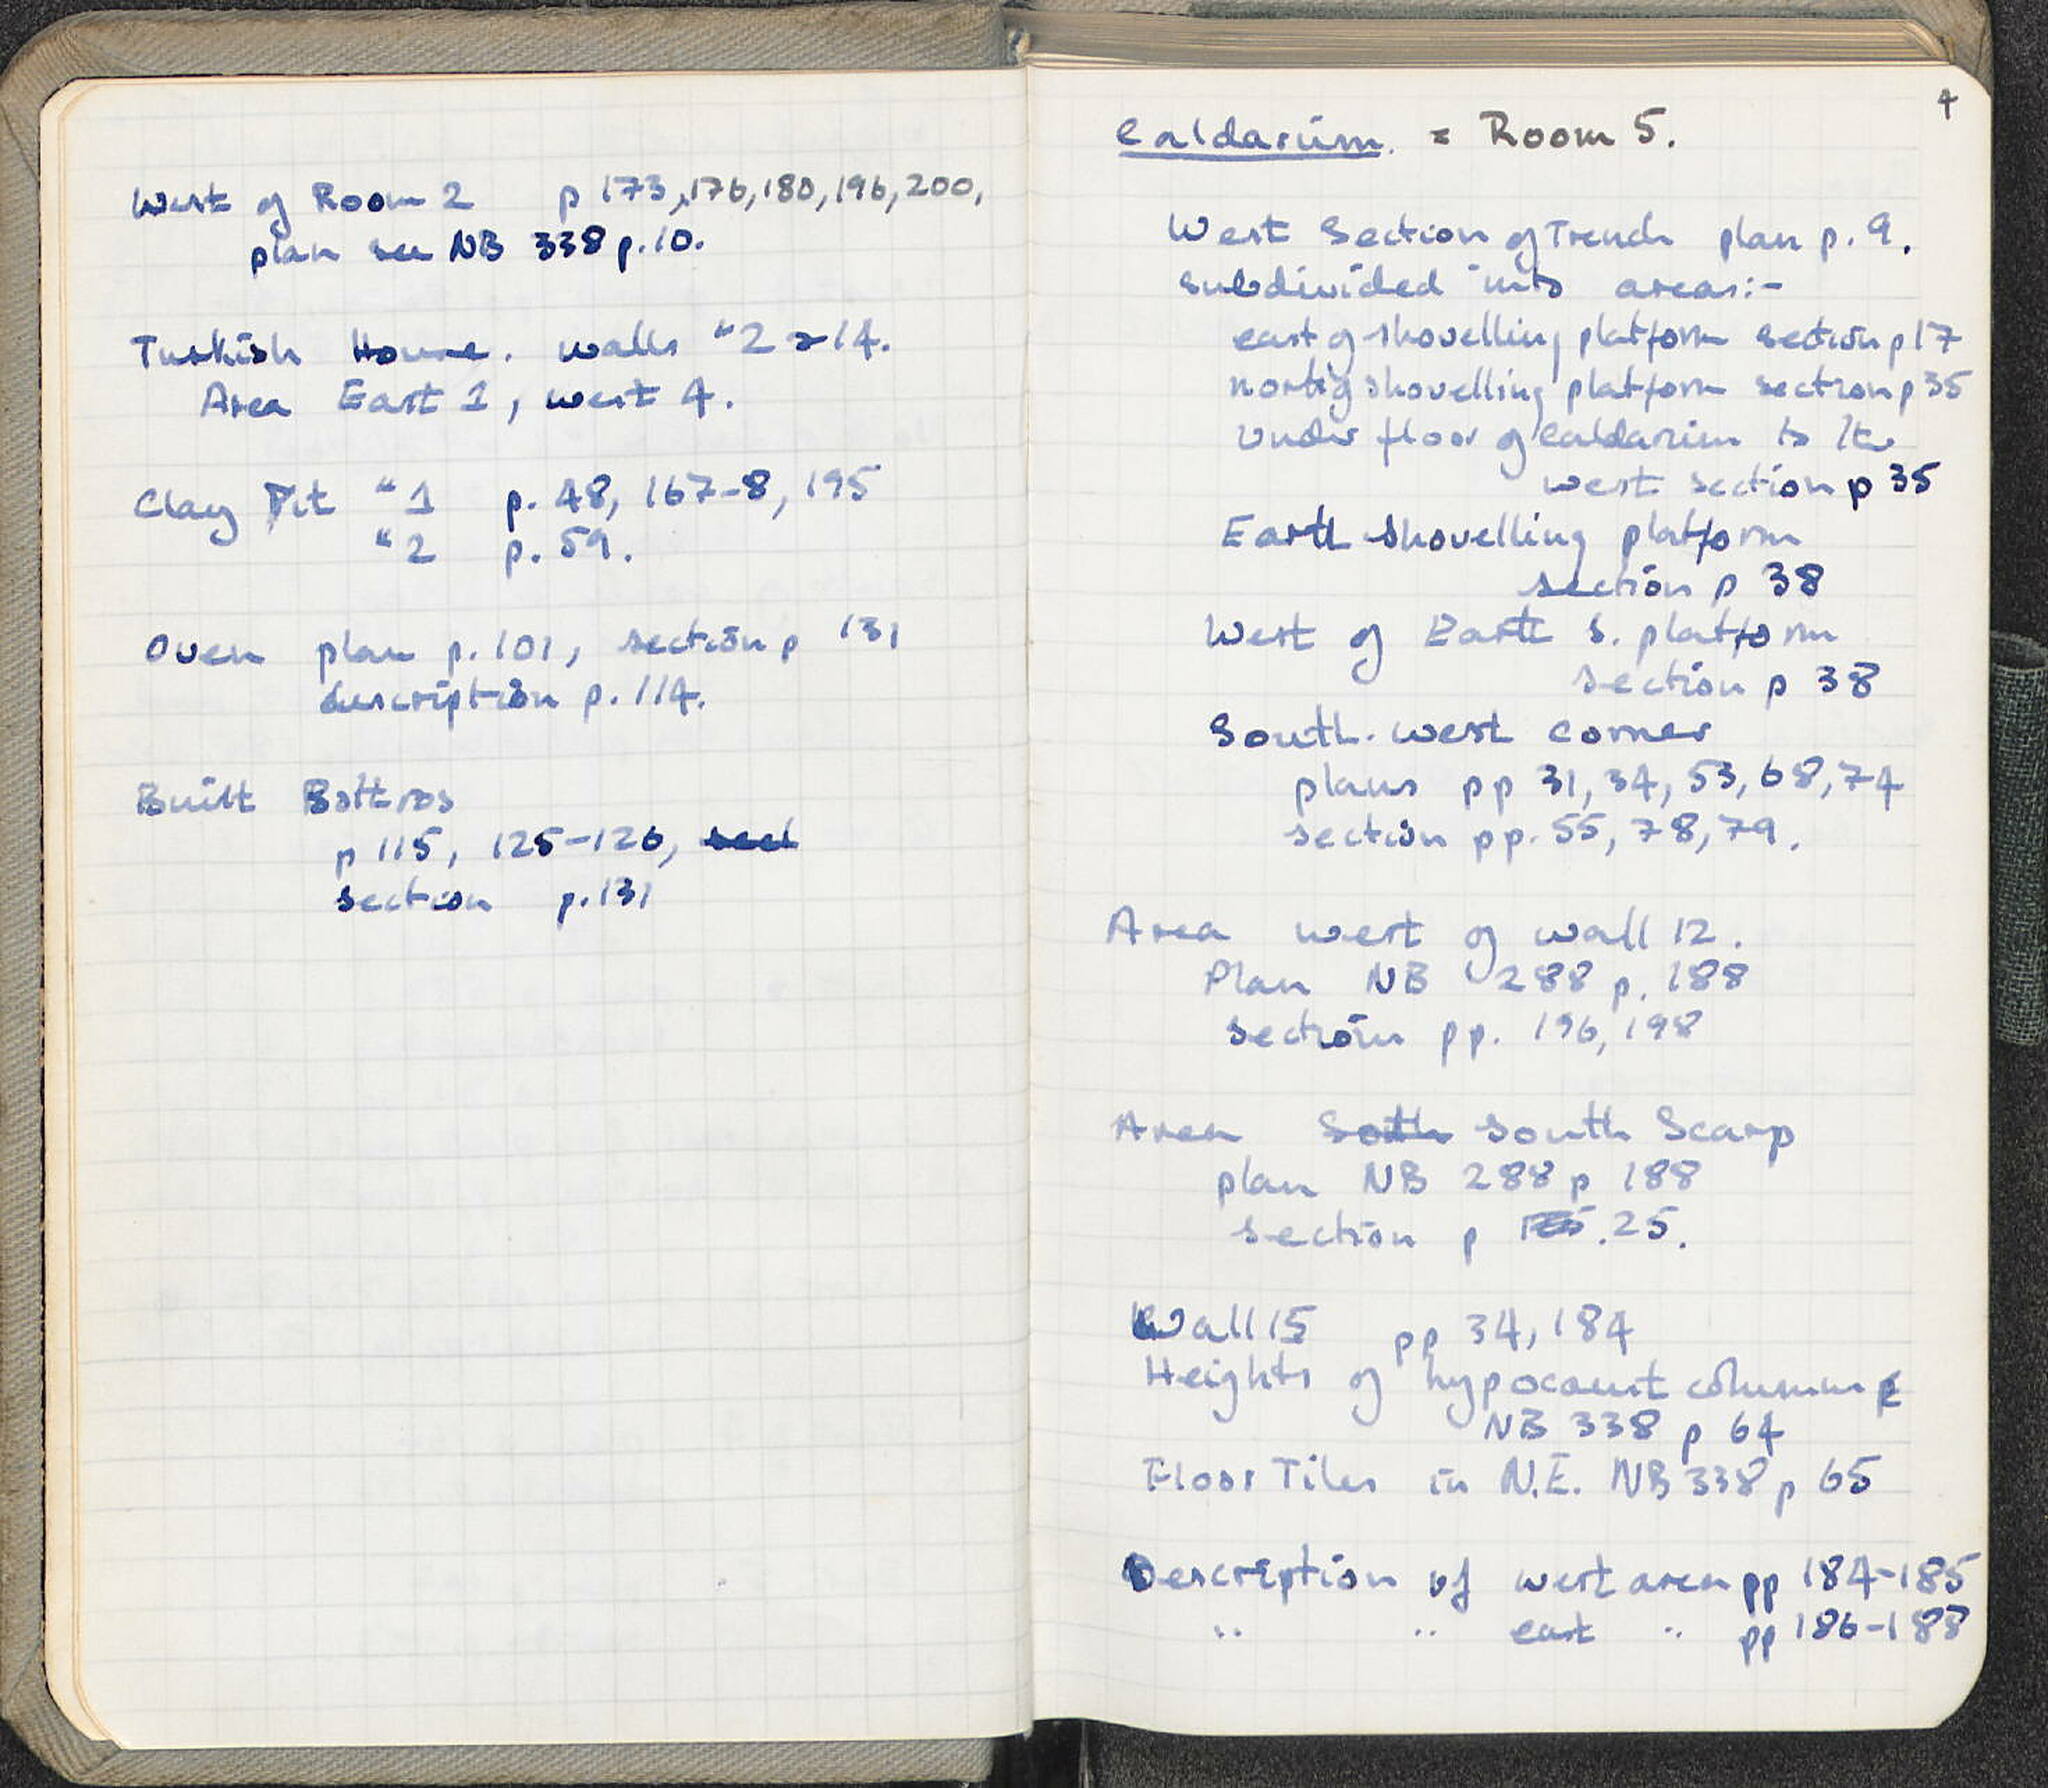 West of Room 2 p 173, 176, 180, 196, 200,
plan see NB 338 p. 10.
Turkish House. walls "2 & 14.
Area East 1, west 4.
Clay Pit "1 p. 48, 167-8, 195
"2 p. 59.
Oven plan p. 101, section p 131
description p. 114.
Built Bothros
p 115, 125-126, sect
section p. 131
4
Caldarium. = Room 5.
West Section of Trench plan p. 9.
subdivided into areas:-
east of shovelling platform section p 17
north of shovelling platform section p 35
Under floor of Caldarium to the
west section p 35
Earth shovelling platform
section p 38
West of Earth S. platform
section p 38
South-west corner
plans pp 31, 34, 53, 68, 74
section pp. 55, 78, 79.
Area west of wall 12.
Plan NB 288 p. 188
sections pp. 196, 198
Area South south Scarp
plan NB 288 p 188
section p .25.
Wall 15 pp 34, 184
Heights of hypocaust columns
NB 338 p 64
Floor Tiles in N.E. NB 338 p 65
Description of west area pp 184-185
" " east " pp 186-188